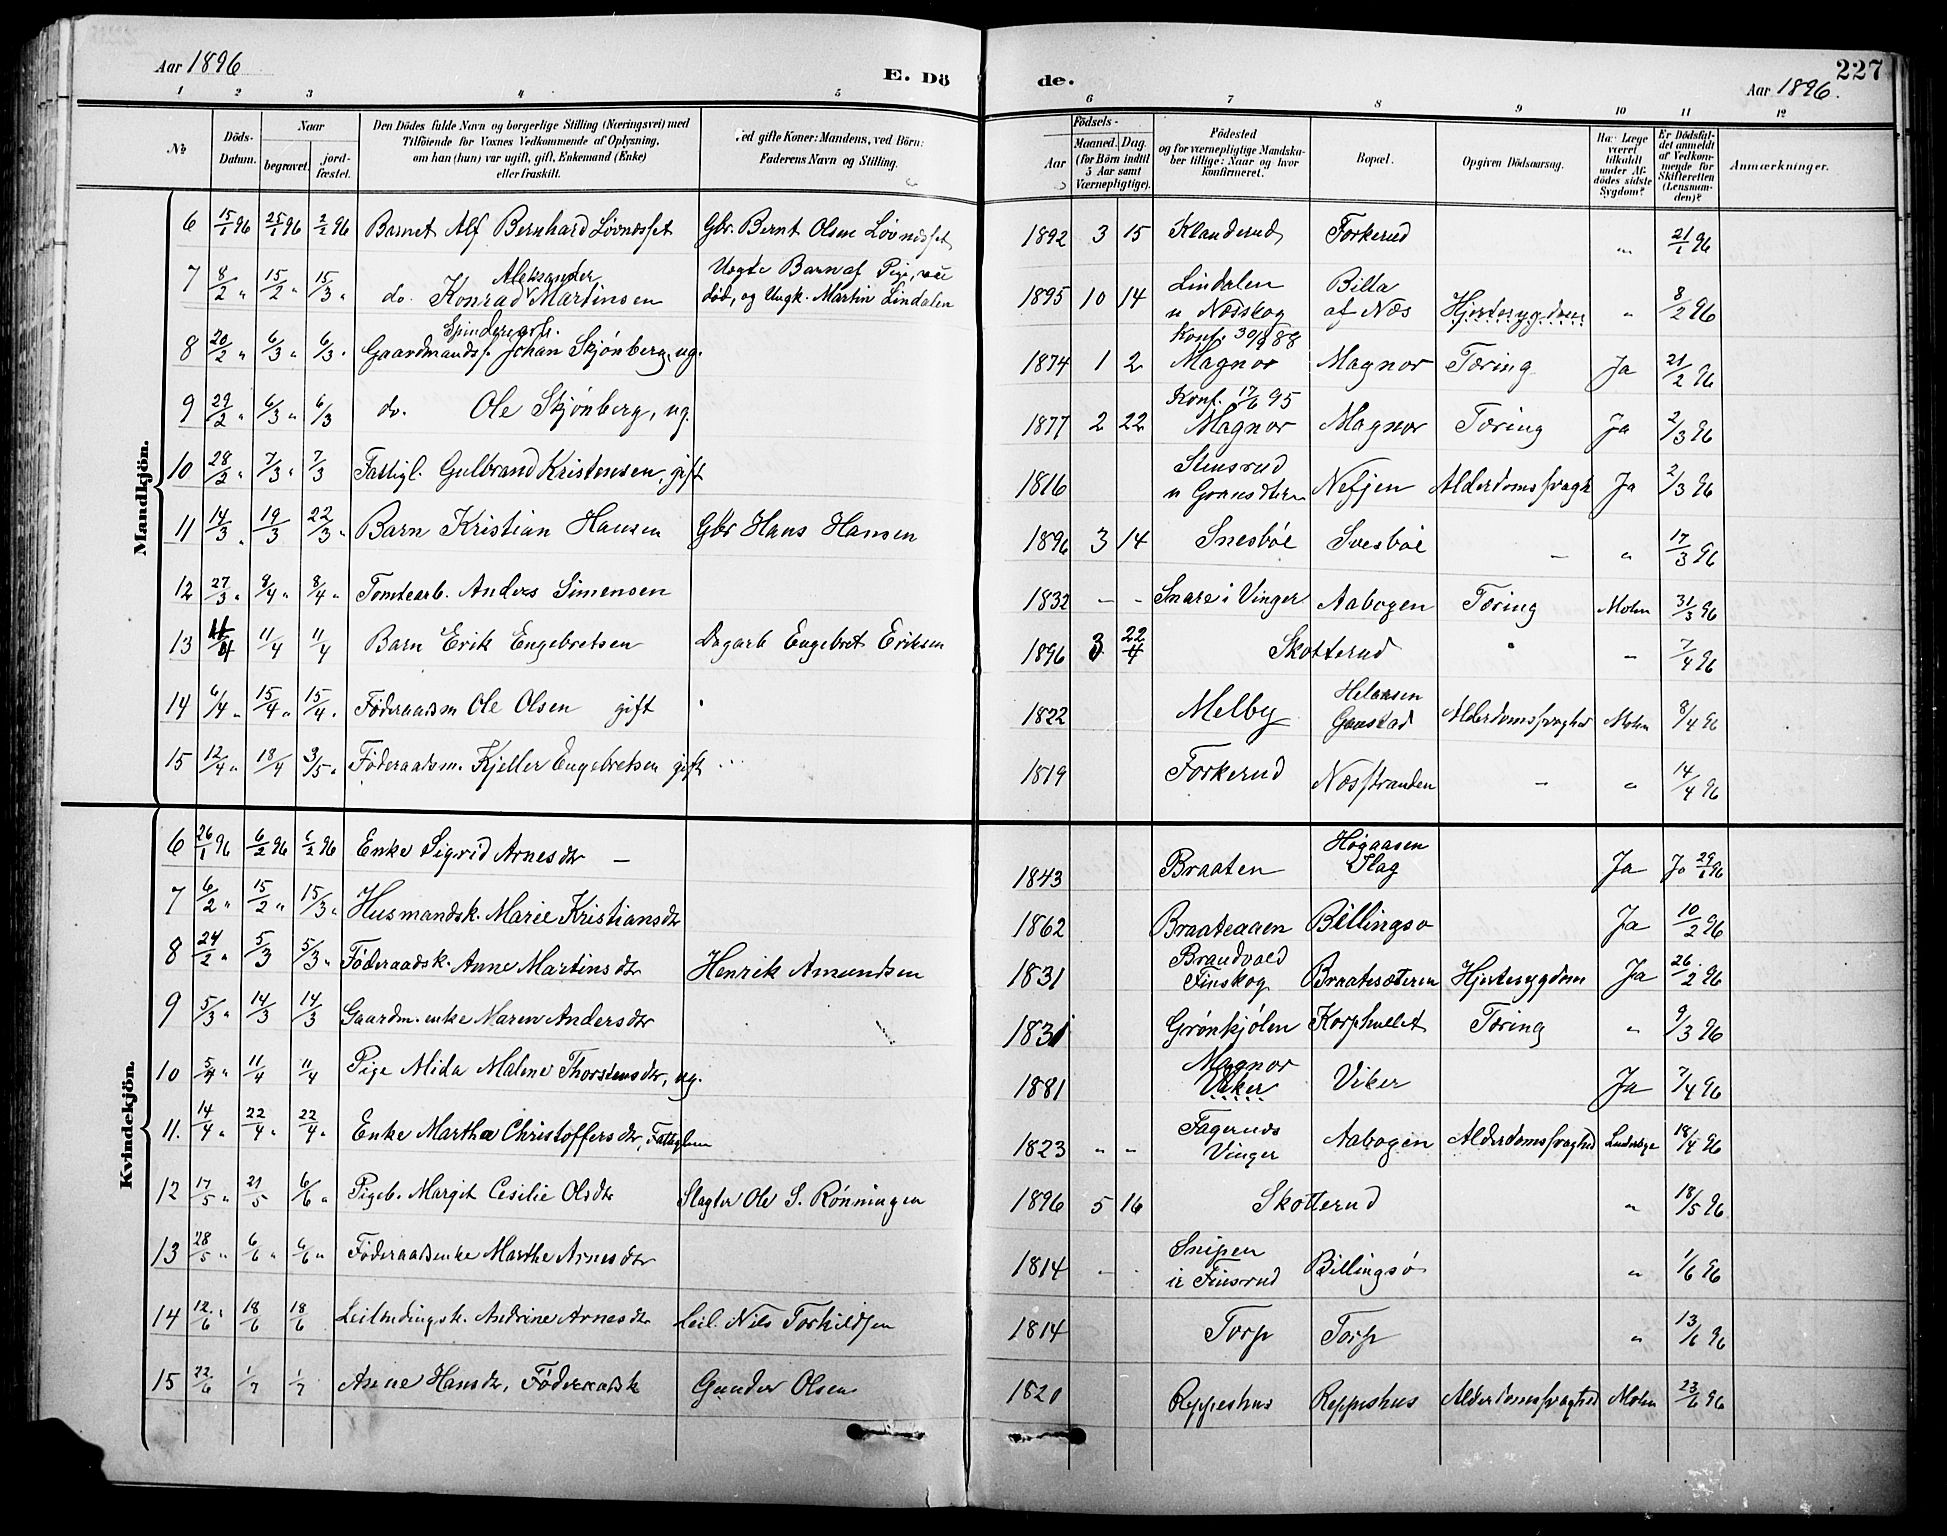 Aar 1896
E. Dö
de.
227
Aar 1896.
1 2 3 4 5 6 7 8 9 10 11 12
№
Döds-Datum.
Naar
begravet.
jord-fæstet.
Den Dödes fulde Navn og borgerlige Stilling (Næringsvei) med
Tilföiende for Voxnes Vedkommende af Oplysning,
om han (hun) var ugift, gift, Enkemand (Enke)
eller fraskilt.
Ved gifte Koner: Mandens, ved Börn:
Faderens Navn og Stilling.
Födsels-
Aar
Maaned. Dag.
(for Börn indtil
5 Aar samt
Værnepligtige).
Födested
og for værnepligtige Mandska-
ber tillige: Naar og hvor
konfirmeret.
Bopæl.
Opgiven Dödsaarsag.
Har Læge
været
tilkaldt
under Af-
dödes sidste
Sygdom?
Er Dödsfal-
det anmeldt
af Vedkom-
mende for
Skifteretten
(Lensman-
den)?
Anmærkninger.
Mandkjön.
6 15/1 96 25/1 96 2/2 96 Barnet Alf Bernhard Lövnæset Gbr. Bernt Olsen Lövnæset 1892 3 15 Klanderud Forkerud " 21/1 96
Aleksander Uægte Barn af Pige, Lindalen Billa
7 8/2 " 15/2 " 15/3 " do. Konrad Martinsen död, og Ungk. Martin Lindalen 1895 10 14 u Næsskog af Næs Hjertesygdom " 8/2 96
Konf. 30/9 88
8 20/2 " 6/3 " 6/3 " Gaardmands s. Johan Skjönberg, ug. 1874 1 2 Magnor Magnor Tæring Ja 21/2 96
Konf. 17/6 95
9 29/2 " 6/3 " 6/3 do. Ole Skjönberg, ug. 1877 2 22 Magnor Magnor Tæring Ja 2/3 96
Stensrud
10 28/2 " 7/3 " 7/3 Fattigl. Gulbrand Kristensen, gift 1816 Nefjen Alderdomssvagh Ja 2/3 96
11 14/3 " 19/3 22/3 " Barn Kristian Hansen Gbr Hans Hansen 1896 3 14 Snesböe Svesböe - " 17/3 96
12 27/3 " 8/4 " 8/4 " Tomtearb. Anders Simensen 1832 - - Snare i Vinger Aabogen Tæring Molin 31/3 96
13 11/4 11/4 Barn Erik Engebretsen Dagarb Engebret Eriksen 1896 3 22/4 Skotterud " 7/4 96
14 6/4 " 15/4 " 15/4 " Föderaadsm Ole Olsen gift 1822 Melby Gaustad Alderdomssvaghed Molin 8/4 96
15 12/4 " 18/4 3/5 " Föderaadsm. Kjeller Engebretsen gift 1819 Forkerud Næsstranden - " 14/4 96
Kvindekjön.
6 26/1 96 6/2 96 6/2 96 Enke Sigrid Arnesdtr - 1843 Braaten Högaasen Slag Ja Ja 29/1 96
7 6/2 " 15/2 " 15/3 " Husmandsk. Marie Kristiansdtr 1862 Braateaaen Billingsö Ja 10/2 96
Brandvold
8 24/2 " 5/3 5/3 " Föderaadsk. Anne Martinsdtr Henrik Amundsen 1831 Finskog Braatesæteren Hjertesygdom Ja 26/2 96
9 5/3 " 14/3 14/3 Gaardm. enke Maren Andersdtr 1831 Grönkjölen Korphullet Tæring " 9/3 96
Magnor
10 5/4 " 11/4 11/4 Pige Alida Malene Thorstensdtr, ug. 1881 Viker Viker Ja 7/4 96
11. 14/4 " 22/4 " 22/4 " Enke Martha Christoffersdtr, Fattiglem 1823 " " Fagernæs Vinger Aabogen Alderdomssvaghed 18/4 96
12 17/5 " 21/5 6/6 " Pigeb. Margit Cesilie Olsdtr Slagter Ole S. Rönningen 1896 5 16 Skotterud " 18/5 96
13 28/5 " 6/6 " 6/6 " Föderaadsenke Marthe Arnesdtr 1814 - - Snipen i Finsrud Billingsö " 1/6 96
14 12/6 " 18/6 18/6 Leilendingsk. Andrine Arnesdtr Leil. Nils Torkildsen 1814 Torp Torp " 13/6 96
15 22/6 1/7 1/7 Anne Hansdtr, Föderaadsk Gunder Olsen 1820 Reppeshus Reppeshus Alderdomssvaghed Molin 23/6 96